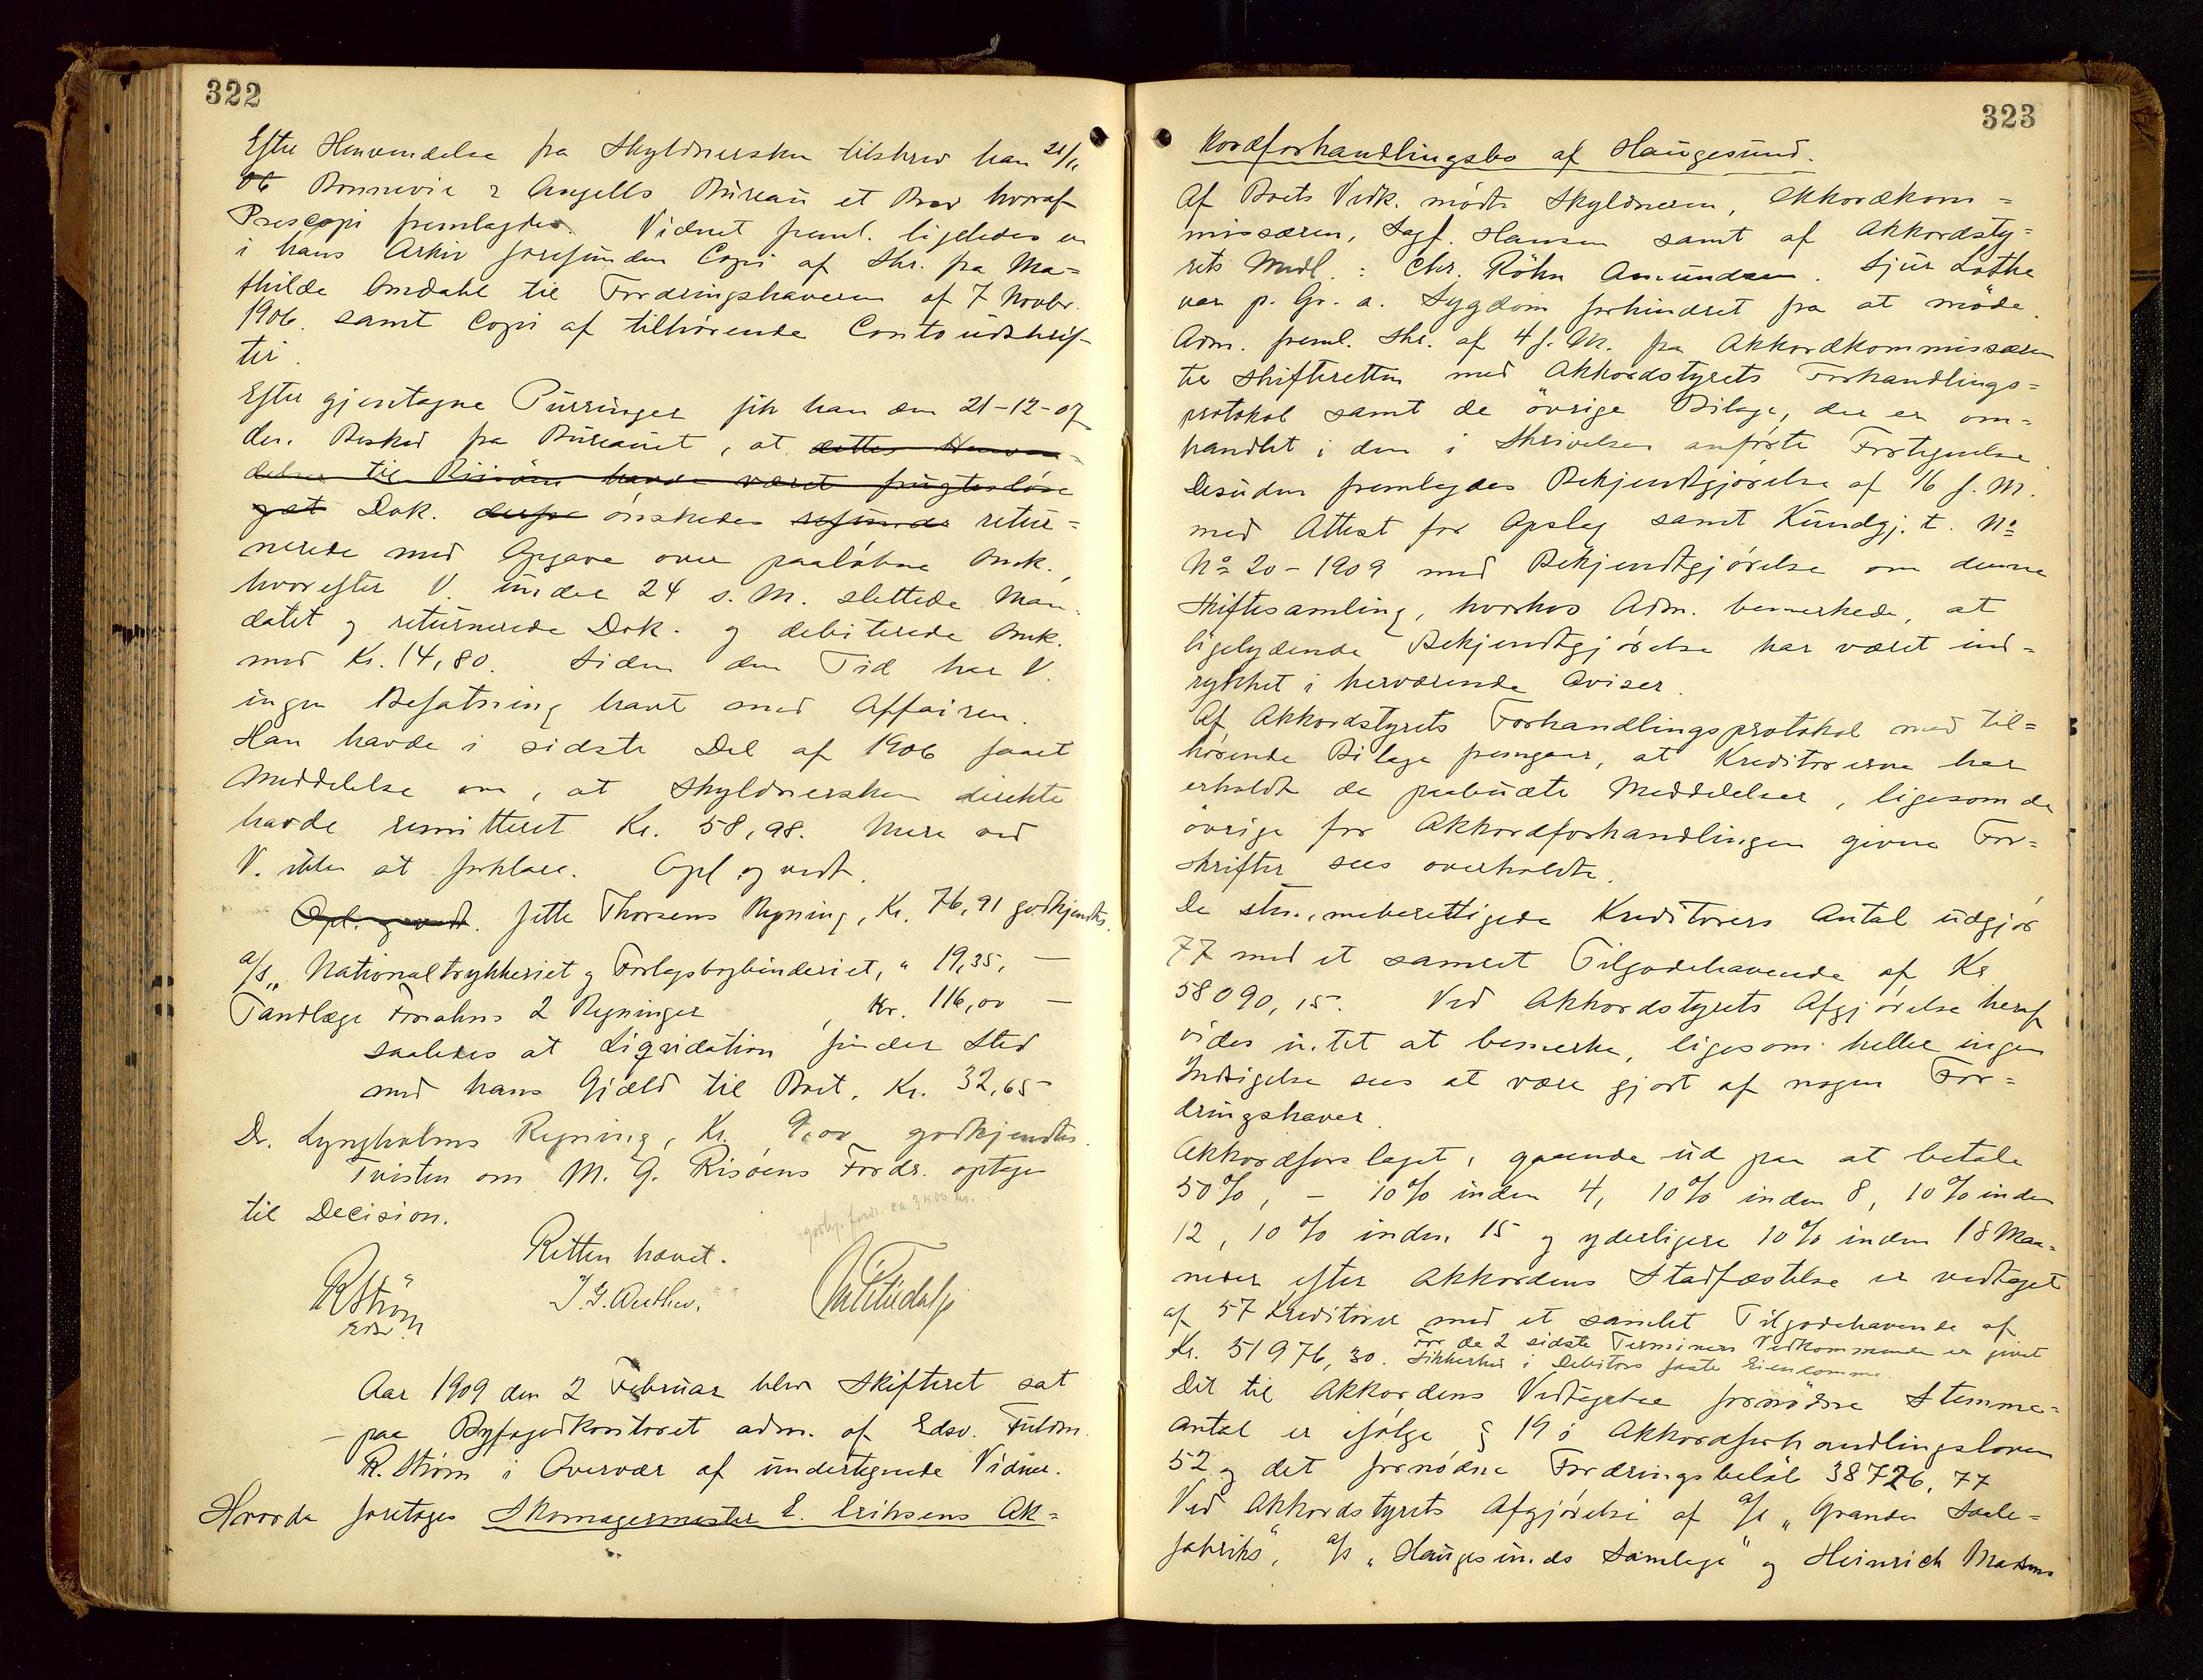 322
Efter Henvendelse fra Skyldnersken tilskrev han 21/11
06 Bonnevie & Angells Bureau et Brev hvoraf
Prescopi fremlagdes. Vidnet freml. ligeledes en
i hans Arkiv forefunden Copi af Skr. fra Ma=
thilde Omdahl til Fordringshaveren af 7 Novbr.
1906. samt Copi af tilhörende Contoudskrif-
ter.
Efter gjentagne Purringer fik han den 21-12-07
den Besked fra Bureauet, at dettes Henven=
delser til Risöen havde været frugtesløse
og at Dok. derfor önskedes refunde retur=
nerede med Opgave over paaløbne Omk.,
hvorefter V. under 24 s. M. slettede Man=
datet og returnerede Dok. og debiterede Omk.
med Kr. 14,80. Siden den Tid har V.
ingen Befatning havt med Affairen.
Han havde i sidste Del af 1906 faaet
Meddelelse om, at Skyldnersken direkte
havde remitteret Kr. 58,98. Mere ved
V. ikke at forklare. Opl. og vedt.
Opl. og vedt. Jette Thorsens Regning, Kr. 76,91 godkjendtes.
A/S „Nationaltrykkeriet og Forlagsbogbinderiet, " 19,35, —
Tandlæge Forsahns 2 Regninger, Kr. 116,00 —
saaledes at Liqvidation finder Sted
med hans Gjæld til Boet, Kr. 32,65
Dr. Lyngholms Regning, Kr. 9,00 godkjendtes.
Tvisten om M. G. Risöens Fordr. optages
til Decision.
godkj. fordr. ca 3500 kr.
Retten hævet.
R Ström
Edsv.
Aar 1909 den 2 Februar blev Skifteret sat
paa Byfogedkontoret adm. af Edsv. Fuldm.
R. Ström i Overvær af undertegnede Vidner.
Hvorda foretoges Skomagermester E. Eriksens Ak=
323
kordforhandlingsbo af Haugesund.
Af Boets Vedk. mödte Skyldneren, Akkordkom=
missæren, Sagf. Hansen samt af Akkordsty=
rets Medl.: Chr. Röhn Amundsen. Sjur Lothe
var p. Gr. a. Sygdom forhindret fra at möde.
Adm. freml. Skr. af 4 f. M. fra Akkordkommissæren
til Skifteretten med Akkordstyrets Forhandlings=
protokol samt de övrige Bilage, der er om=
handlet i den i Skrivelsen anførte Fortegnelse.
Desuden fremlagdes Bekjendtgjörelse af 16 f. M.
med Attest for Opslag samt Kundgj. t. No
No 20 - 1909 med Bekjendtgjörelse om denne
Skiftesamling, hvorhos Adm. bemerkede, at
ligelydende Bekjendtgjörelse har været ind=
rykket i herværende Aviser.
Af Akkordstyrets Forhandlingsprotokol med til=
hörende Bilage fremgaar, at Kreditorerne har
erholdt de paabudte Meddelelser, ligesom de
övrige for Akkordforhandlingen givne For=
skrifter sees overholdte.
De stemmeberettigede Kreditorers Antal udgjör
77 med et samlet Tilgodehavende af Kr.
58090,15. Ved Akkordstyrets Afgjörelse heraf
vides intet at bemerke, ligesom heller ingen
Indsigelse sees at være gjort af nogen For=
dringshaver.
Akkordforslaget, gaaende ud paa at betale
50%, - 10% inden 4, 10% inden 8, 10% inden
12, 10% inden 15 og yderligere 10% inden 18 Maa=
neder efter Akkordens Stadfæstelse er vedtaget
af 57 Kreditorer med et samlet Tilgodehavende af
Kr. 51976,30. For de 2 sidste Terminers Vedkommende er givet
Sikkerhed i Debitors faste Eiendomme.
Det til Akkordens Vedtagelse fornödne Stemme=
antal er ifølge § 19 i Akkordforhandlingsloven
52 og det fornödne Fordringsbelöb 38726,77
Ved Akkordstyrets Afgjörelse af A/S „Grandes Saale=
fabrik", A/S „Haugesunds Samlage" og Heinrich Madsens